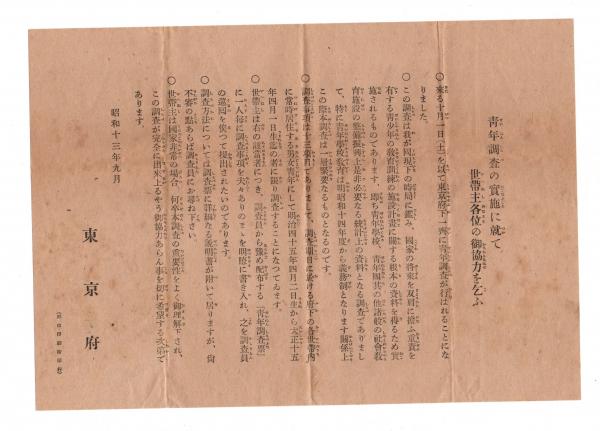 青年調査の實施に就て
世帶主各位の御協力を乞ふ
○來る十月一日(土)を以て東京府下一齊に青年調査が行はれることにな
りました。
○この調査は我が國現下の時局に鑑み、國家の將來を双肩に擔ふ重責を
有する青少年の教育訓練の施設計畫に關する根本の資料を得るため實
施されるものであります。即ち青年學校、青年團其の他諸般の社會教
育施設の整備振興上是非必要なる統計上の資料となる調査でありまし
て、特に青年學校教育は明昭和十四年度から義務制となります關係上
この際本調査は一層緊要なるものとなるのです。
○調査事項は十三項目でありまして、調査期日に於ける府下の各世帶內
に常時居住する男女青年にして明治四十五年四月二日生から大正十五
年四月一日生迄の者に限り調査することになつてゐます。
○世帶主は右の該當者につき、調査員から豫め配布する「青年調査票」
に一人每に調査事項を夫々ありのまゝを明瞭に書き入れ、之を調査員
の巡回を俟つて提出されたいのであります。
○調査方法については調査票に詳細なる說明書が附いて居りますが、尙
不審の點あらば調査員にお尋ね下さい。
○世帶主は國家非常の場合、何卒本調査の重要性をよく御理解下され、
この調査が完全に出來上るやう御協力あらん事を切に希望する次第で
あります。
昭和十三年九月
東京府